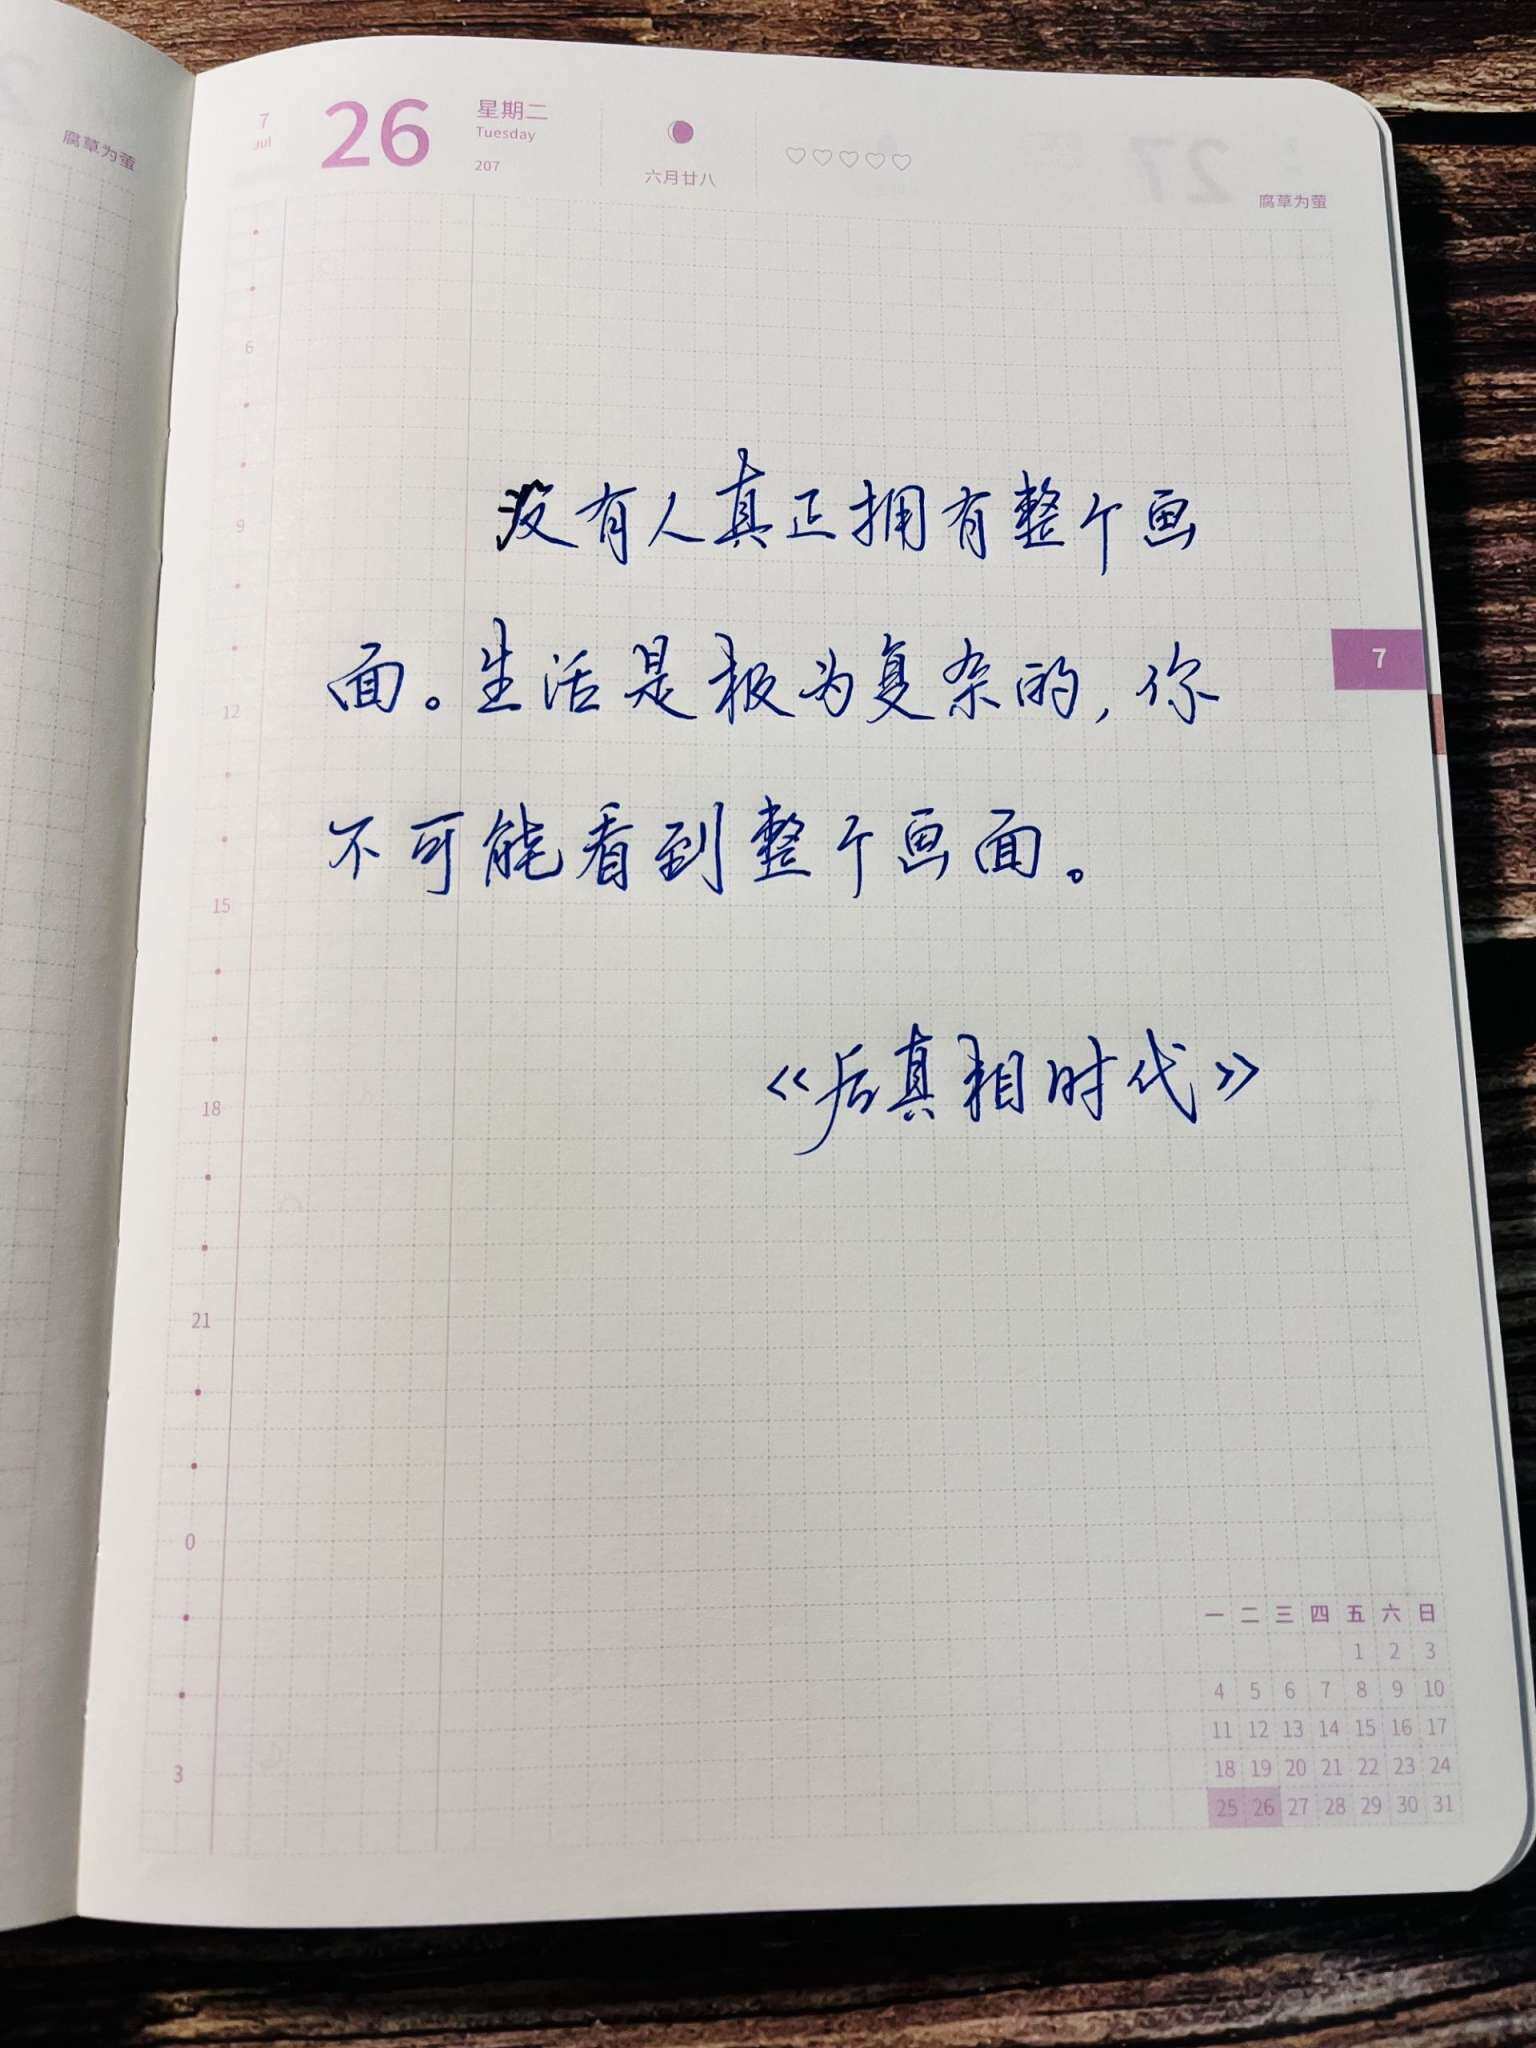 腐草为萤
7
Jul
26
星期二
Tuesday
207
六月廿八
腐草为萤
6
9
12
15
18
21
0
3
没有人真正拥有整个画
面。生活是极为复杂的,你
不可能看到整个画面。
《后真相时代》
7
一 二 三 四 五 六 日
1 2 3
4 5 6 7 8 9 10
11 12 13 14 15 16 17
18 19 20 21 22 23 24
25 26 27 28 29 30 31